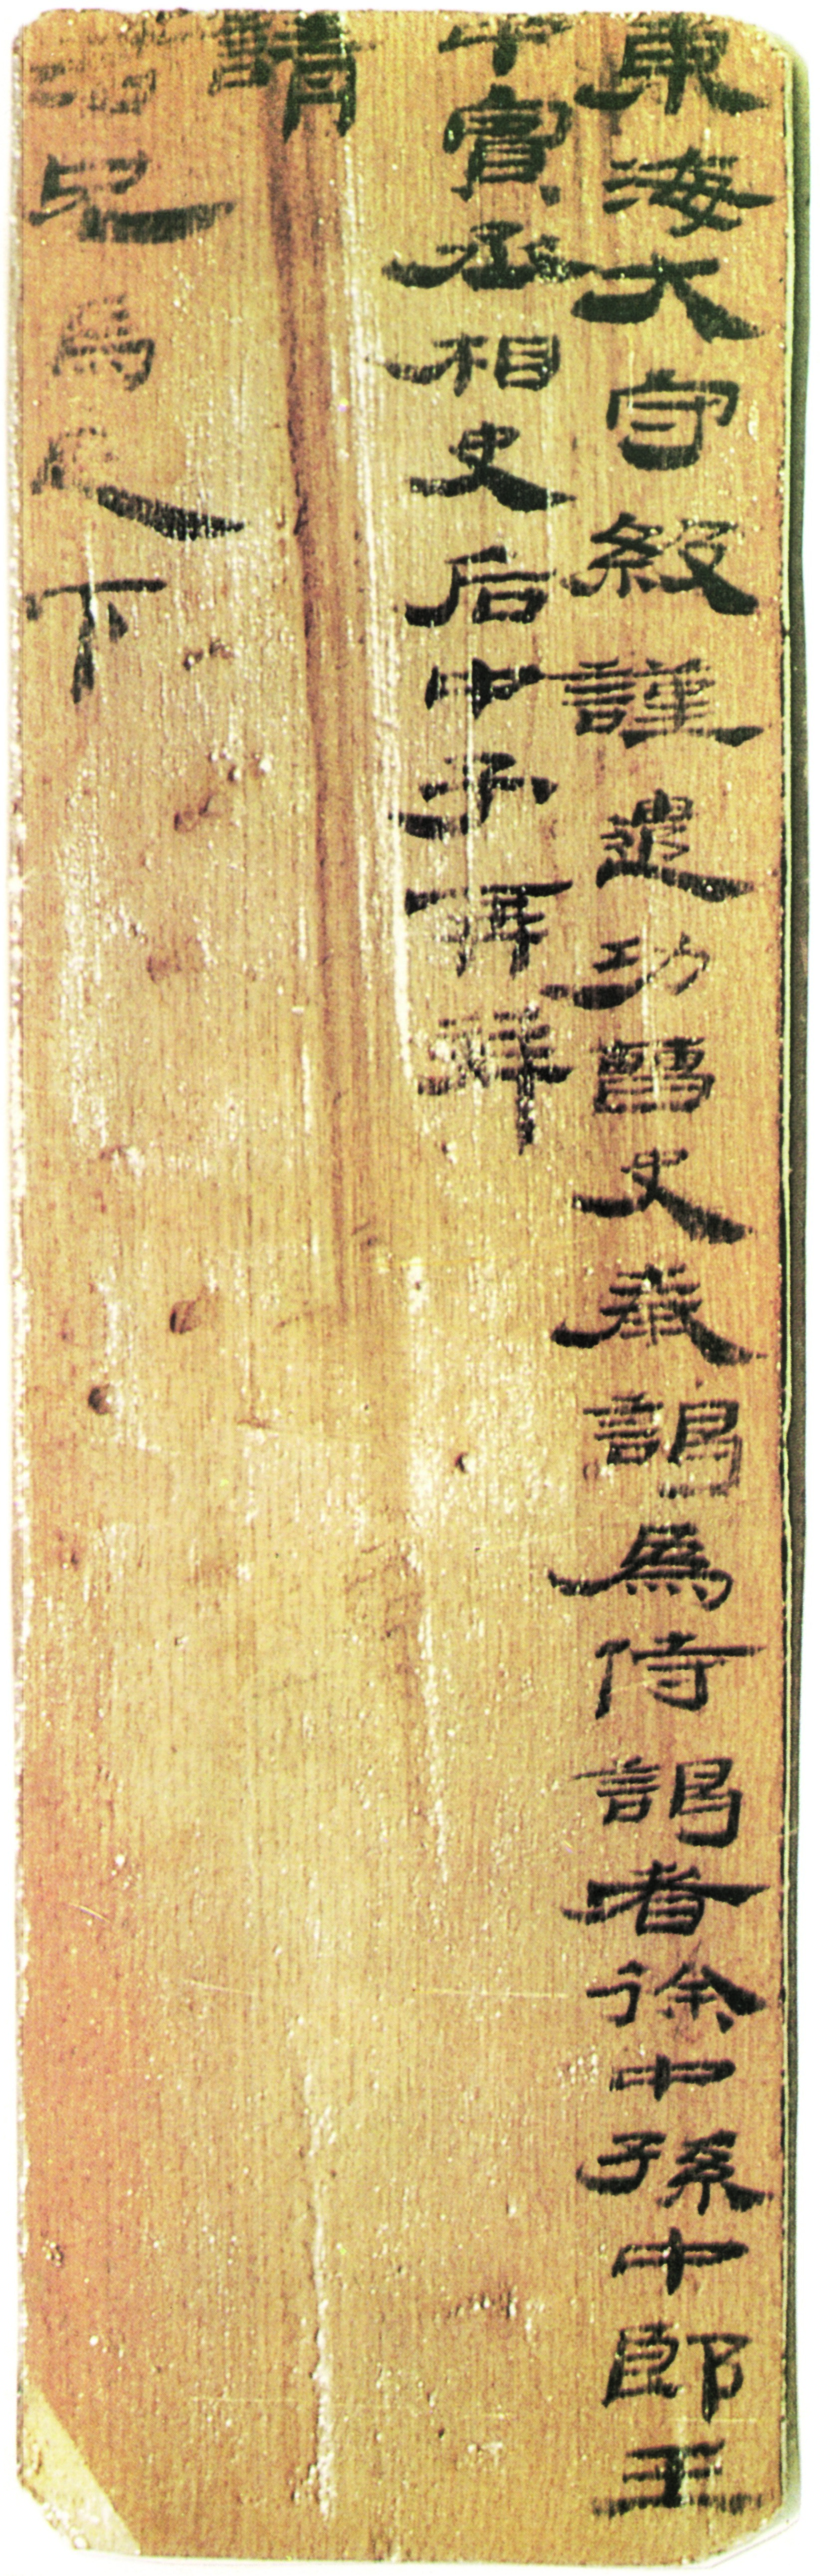 東海大守級謹遣功曹史奉謁為侍謁者徐中孫中郎王
中賓丞相史后中子再拜
請
君兄馬足下